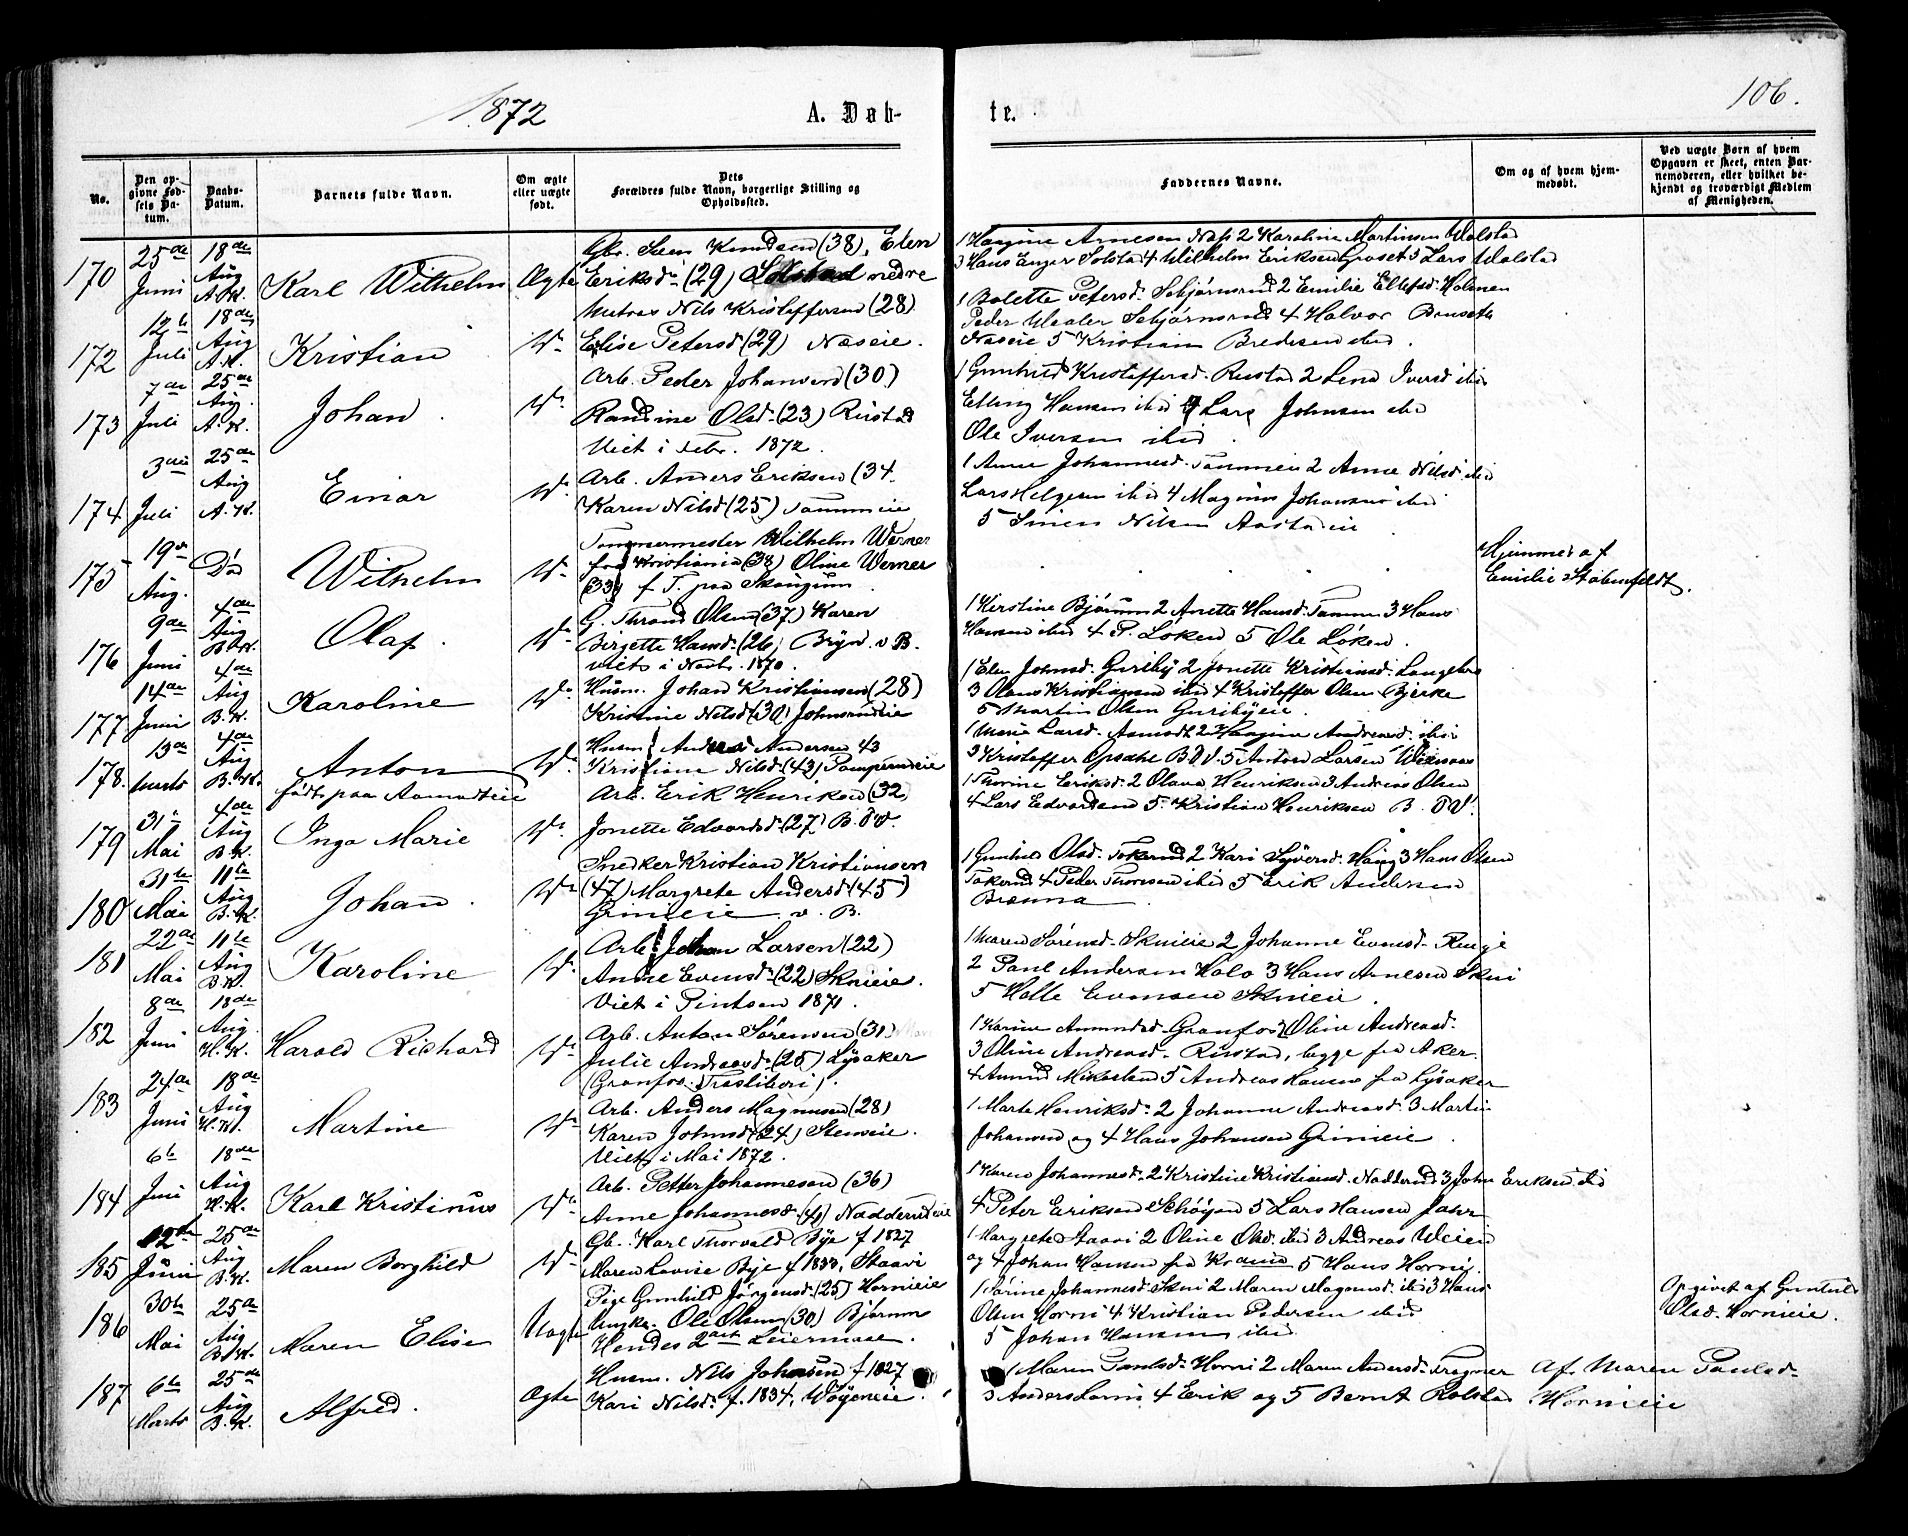 1872
A. Døb-
te.
106.
No.
Den op-
givne Fød-
sels Da-
tum.
Daabs-
Datum.
Barnets fulde Navn.
Om ægte
eller uægte
født.
Dets
Forældres fulde Navn, borgerlige Stilling og
Opholdssted.
Faddernes Navne.
Om og af hvem hjem-
medøbt.
Ved uægte Børn af hvem
Opgaven er skeet, enten Bar-
nemoderen, eller hvilket be-
kjendt og troværdigt Medlem
af Menigheden.
170
25de
Juni
18de
Aug
A.K.
Karl Wilhelm
Ægte
Knudsen (38), Elen
Eriksd. (29) Solstad nedre
1 Hagine Arnesen Næs 2 Karoline Martinsen Valstad
3 Hans Enger Solstad 4 Wilhelm Eriksen 5 Lars Valstad
172
12te
Juli
18de
Aug
A.K.
Kristian
Do
Nils Kristoffersen (28)
Elise Petersd (29) Næseie.
1 Bolette Petersd. Sebjørnsrud 2 Emilie Ellefsd. Holmen
Peder Sebjørnsrud 4 Halvor
Næseie 5 Kristian Bredesen ibid.
173
7de
Juli
25de
Aug.
A.K.
Johan
Do
Arb. Peder Johansen (30)
Randine Olsd. (23) Rustad
Viet i Febr. 1872.
1 Gunhild Kristoffersd. Rustad 2 Lena Iversd ibid
Elling Hansen ibid 4 Lars Johnsen ibid
Ole Iversen ibid.
174
3die
Juli
25de
Aug
A.K.
Einar
Do
Arb. Anders Eriksen (34
Karen Nilsd (25) Tanumeie
1 Anne Johannesd. Tanumeie 2 Anne Nilsd ibid
Lars Helgesen ibid 4 Magnus Johansen ibid
5 Simen Nilsen
175
19de
Aug.
Do
Wilhelm
Do
Tømmermester Wilhelm Werner
fra Kristiania (38) Oline Werner
(33) f T. paa Skougum.
Hjemmed. af
Emilie
176
9de
Juni
4de
Aug
B.K.
Olaf.
Do
G. Thrond Olsen (37) Karen
Birgitte Hansd. (26) Bryn v B.
viet i Novbr. 1870.
1 Kirstine Bjørum 2 Anette Hansd. Tanum 3 Hans
Hansen ibid 4 P. Løken 5 Ole Løken.
177
14de
Juni
4de
Aug
B.K.
Karoline
Do
Husm. Johan Kristiansen (28)
Kristine Nilsd (30) Johnsrudeie
1 Elen Johnsd. Guriby 2 Jonette Kristiansd.
3 Olaus Kristiansen ibid 4 Kristoffer Olsen Bjerke
5 Martin Olsen Guribyeie.
178.
13de
Marts
4de
Aug
B.K.
Anton
født paa Aamodteie
Do
Husm. Andreas Andersen 43
Kristiane Nilsd. (43)
1 Marie Larsd. Aamodt 2 Hagine Andreasd. ibid
3 Kristoffer Opsahl B.V. 5 Anton Larsen
179
31te
Mai
4de
Aug
B.K.
Inga Marie
Do
Arb. Erik Henriksen (32)
Jonette Edvardsd. (27) B.V.
1 Thorine Eriksd. 2 Olava Henriksen 3 Andreas Olsen
4 Lars Edvardsen 5 Kristian Henriksen B.V.
180
31te
Mai
11te
Aug
B.K.
Johan.
Do
Snedker Kristian Kristiansen
(47) Margrete Andersd. (45)
Grinieie v. B.
1 Gunhild Olsd. Tokerud 2 Kari Syversd. Haug 3 Hans Olsen
Tokerud 4 Peder Thoresen ibid 5 Erik Andersen
Brænna
181
22de
Mai
11te
Aug
B.K.
Karoline
Do
Arb. Johan Larsen (22)
Anne Evensd. (22) Skuieie.
Viet i Pintsen 1871.
1 Maren Sørensd. Skuieie 2 Johanne Evensd.
2 Paul Andersen 3 Hans Arnesen Skui
5 Halle Evensen Skuieie.
182
8de
Juni
18de
Aug.
H.K.
Harald Richard
Do
Arb. Anton Sørensen (31)
Julie Andreasd. (25) Lysaker
(Granfos Træsliberi).
1 Karine Amundsd. Granfos 2 Oline Andreasd.
3 Oline Andreasd. Rustad, begge fra Aker.
4 Amund Mikkelsen 5 Andreas Hansen fra Lysaker
183
24de
Juni
18de
Aug
H.K.
Martine
Do
Arb. Anders Magnusen (28)
Karen Johnsd (24) Steneie.
Viet i Mai 1872.
1 Marte Henriksd. 2 Johanne Andreasd. 3 Martin
Johansen og 4 Hans Johansen Grinieie.
184
6te
Juni
18de
Aug
H.K.
Karl Kristinus
Do
Arb. Petter Johannesen (36)
Anne Johannesd. (40) Nadderudeie
1 Karen Johannesd. 2 Kristine Kristiansd. Nadderud 3 John Eriksen ibid
4 Peter Eriksen 5 Lars Hansen
185
12te
Juni
25de
Aug
B.K.
Maren Borghild
Do
Gb. Karl Thorvald Bye f 1827
Maren Lovise Bye f 1833, Staavi
1 Margrethe Staavi 2 Oline Olsd. ibid 3 Andreas
og 4 Johan Hansen fra 5 Hans Horni.
186
30te
Mai
25de
Aug
B.K.
Maren Elise
Uægte
Pige Gunhild Jørgensd. (25) Hornieie
Ungk. Ole Olsen (30) Bjørum
Hendes 2det Leiermaal.
1 Karine Johannesd. Skui 2 Maren Magnusd. ibid 3 Hans
Olsen Horni 4 Kristian Pedersen ibid
5 Johan Hansen ibid.
Opgivet af Gunhild
Olsd. Hornieie.
187
6te
Marts
25de
Aug
B.K.
Alfred.
Ægte
Husm. Nils Johnsen f 1827
Kari Nilsd. f. 1834, Wøyeneie.
1 Maren Paulsd. Horni 2 Maren Andersd.
3 Anders Horni 4 Erik og 5 Bernt Rolstad
Af Maren Paulsd.
Hornieie